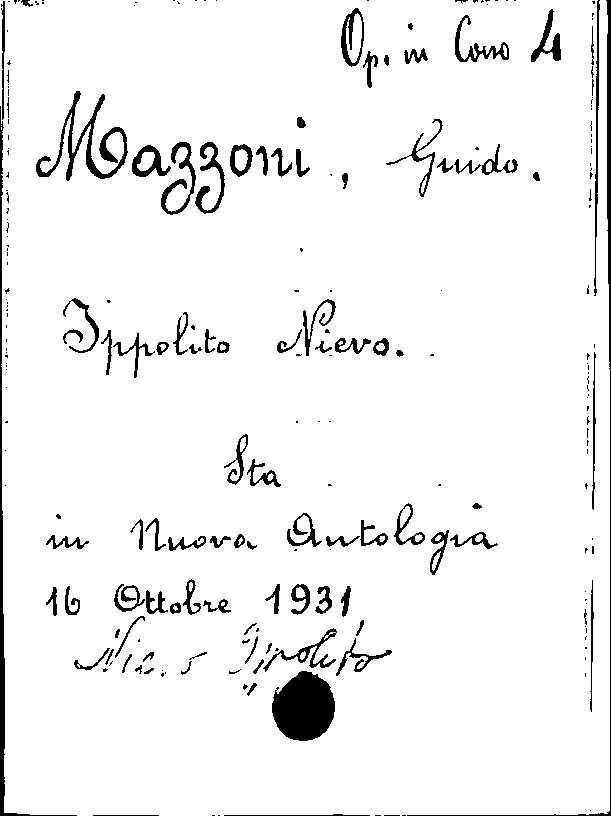 Op. in Corso 4
Mazzoni, Guido.
Ippolito Nievo.
Sta
in Nuova Antologia
16 Ottobre 1931
Ippolito